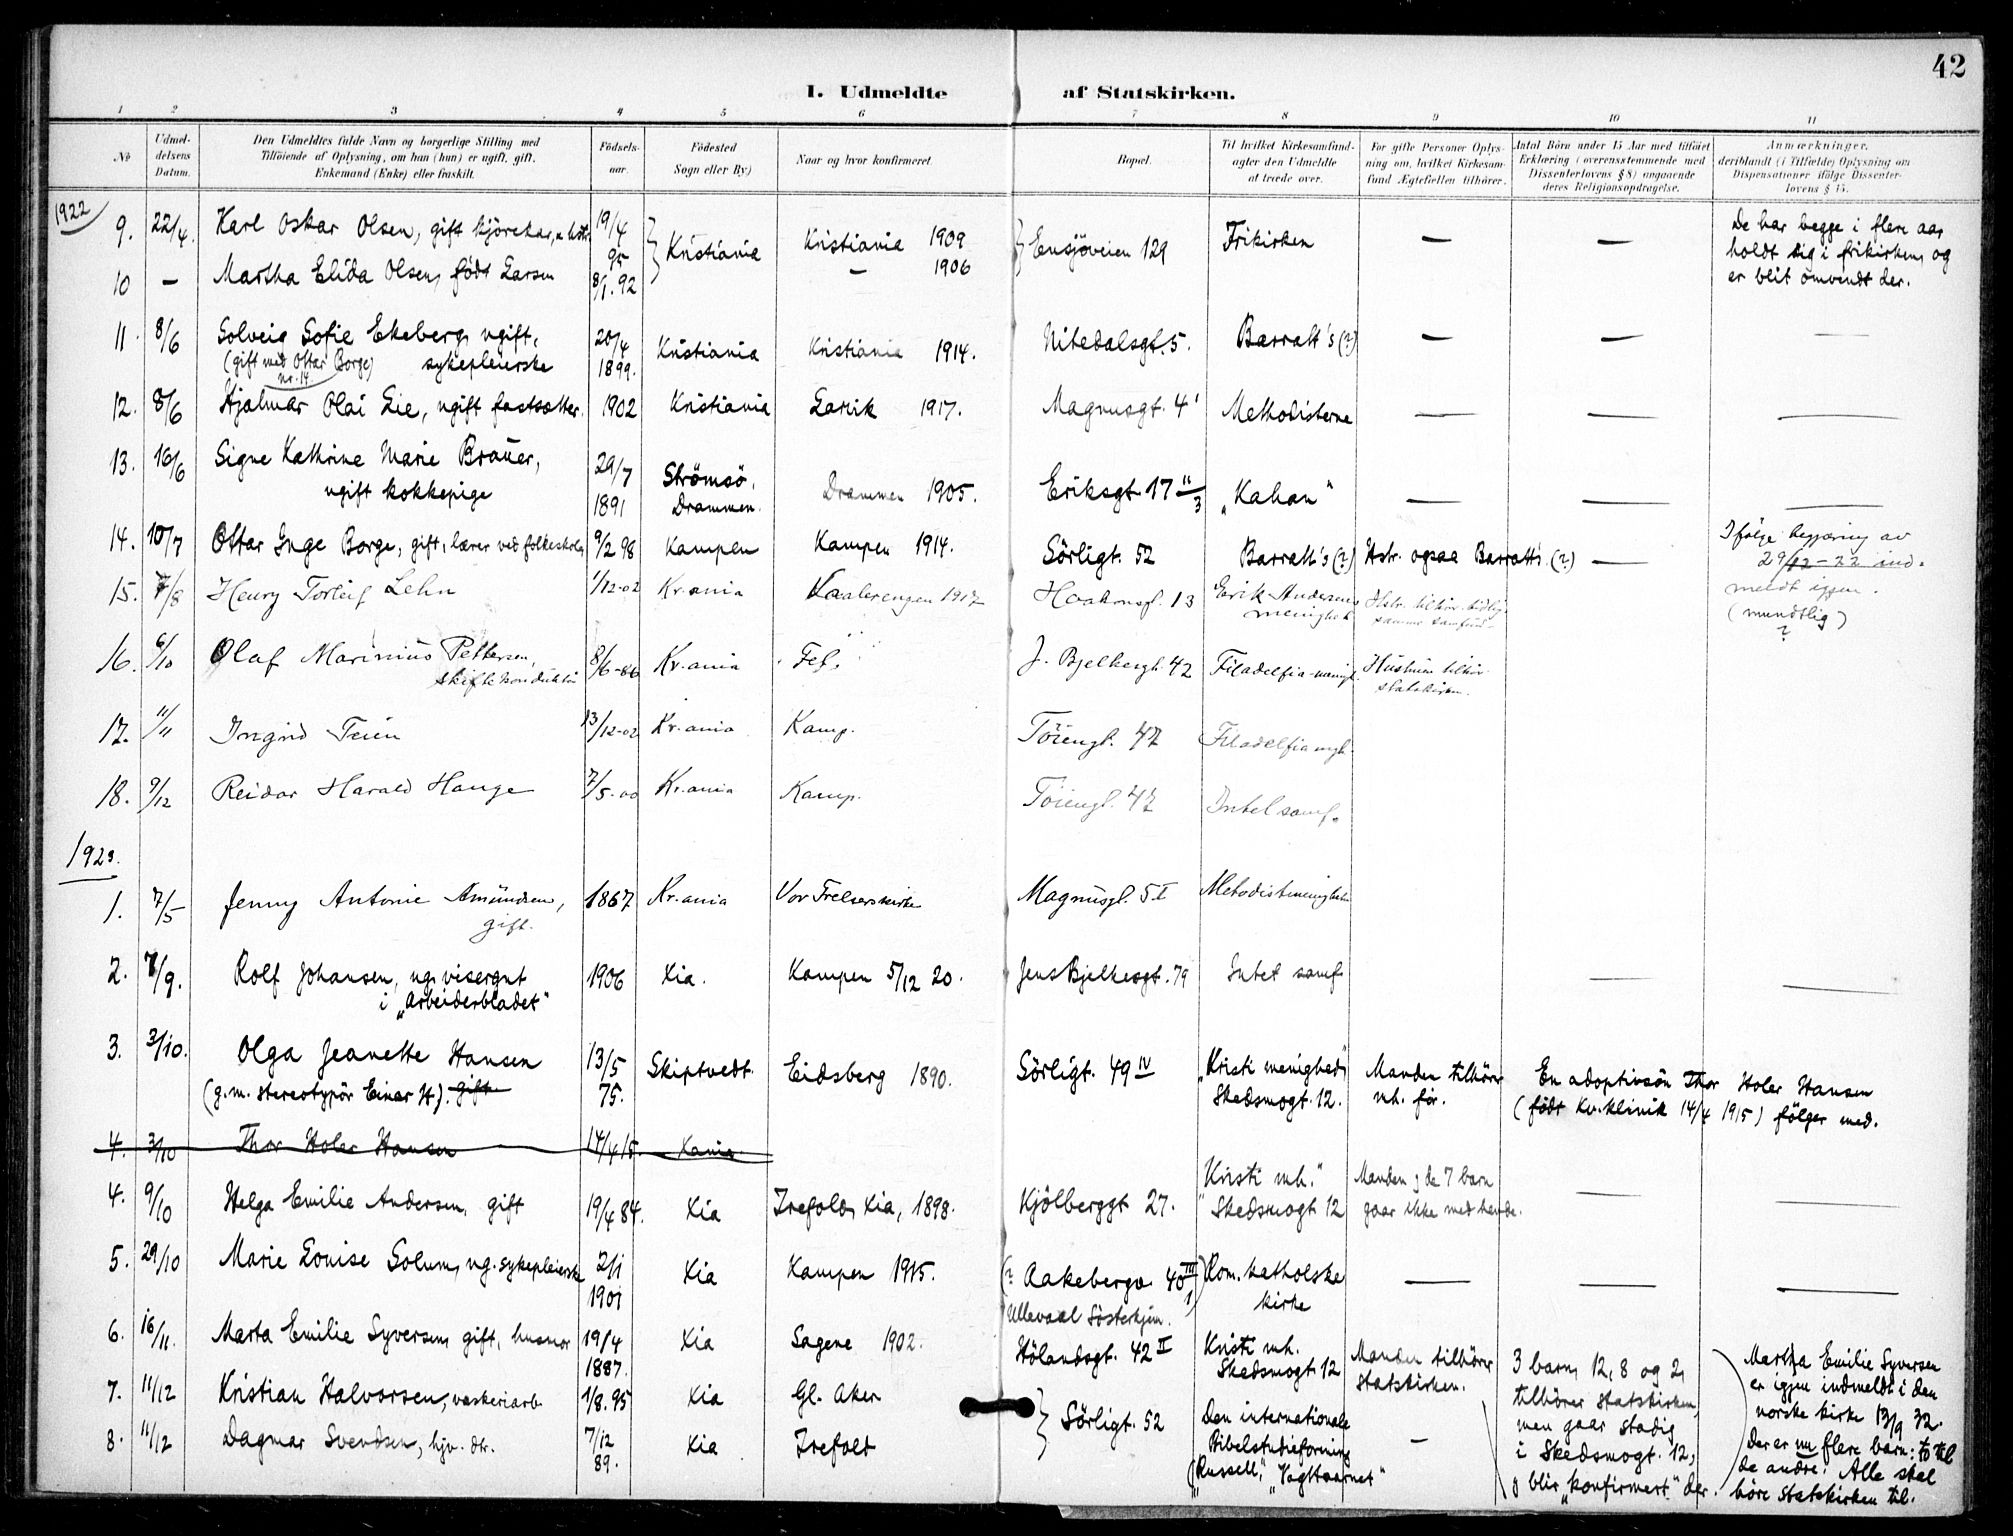 42
1. Udmeldte af Statskirken.
1 2 3 4 5 6 7 8 9 10 11
No
Udmel-
delsens
Datum.
Den Udmeldtes fulde Navn og borgerlige Stilling med
Tilføiende af Oplysning, om han (hun) er ugift, gift,
Enkemand (Enke) eller fraskilt.
Fødsels-
aar.
Fødested
Sogn eller By)
Naar og hvor konfirmeret.
Bopæl.
Til hvilket Kirkesamfund
agter den Udmeldte
at træde over.
For gifte Personer Oplys-
ning om, hvilket Kirkesam-
fund Ægtefællen tilhører.
Antal Børn under 15 Aar med tilføiet
Erklæring i overensstemmende med
Dissenterlovens § 8) angaaende
deres Religionsopdragelse.
Anmærkninger,
deriblandt (i Tilfælde) Oplysning om
Dispensationer ifølge Dissenter-
lovens § 15.
1922
9. 22/4. Karl Oskar Olsen, gift kjörekar, 19/4 95 Kristiania Kristiania 1909 Ensjöveien 129 Frikirken — —
De har begge i flere aar
holdt sig i frikirken og
er blit omvendt der.
10 — Martha Elida Olsen, födt Larsen 8/1. 92 — 1906
11. 8/6 Solveig Sofie Ekeberg, ugift, 20/4 1899. Kristiania Kristiania 1914. Nitedalsgt. 5. Barratt's (?) — — —
(gift med Ottar Borge) sykepleierske
nr. 14.
12. 8/6 Hjalmar Olai Lie, ugift fastsætter. 1902 Kristiania Larvik 1917. Magnusgt. 4 Methodisterne — — —
13. 16/6 Signe Kathrine Marie Braüer, 29/7 1891 Strömsö, Drammen. Drammen 1905. Eriksgt. 17 II/3 "Kahan" — — —
ugift kokkepige
14. 10/7 Ottar Inge Borge, gift, lærer ved folkeskolen 9/2 98 Kampen Kampen 1914. Sörligt. 52 Barratt's (?) Hstr. ogsaa Barratt's (?) —
Ifölge begjæring av
29/12-22 ind-
meldt igjen.
(mundtlig)
?
15. 7/8 Henry Torleif Lehn 1/12-02 Kr.ania Vaalerengen 1917 13 Erik Andersens menighet Hstr. tilhör. tidlig. samme samfund
16. 6/10 Olaf Marinius Pettersen, 8/6-86 Kr.ania J. Bjelkesgt. 42 Filadelfia-menigh. Hustruen tilhör. statskirken.
skiftekonduktör
17. 11/11 Ingrid Teien 13/12-02 Kr.ania Kamp. Töiengt. 47 Filadelfia mgh.
18. 9/12 Reidar Harald Hauge 7/5-00 Kr.ania Kamp. Töiengt. 47 Intet samf.
1923.
1. 7/5 Jenny Antonie Amundsen, 1867 Kr.ania Vor Frelsers kirke Magnusgt. 5 I Metodistmenigheten
gift.
2. 7/9. Rolf Johansen, ug. visergut 1906 Xia. Kampen 5/12 20. Jens Bjelkesgt. 79 Intet samf — —
i "Arbeiderbladet"
3. 3/10. Olga Jeanette Hansen 13/5 75. Skiptvedt. Eidsberg 1890. Sörligt. 49 IV "Kristi menighed" Skedsmogt. 12. Manden tilhörer mh. för. En adoptivsön Thor Holer Hansen
(g.m. stereotypör Einar H.). gift. (födt Kv.klinik 14/4 1915) fölger med.
4. 3/10 Thor Holer Hansen 14/4 15. Xania.
4. 9/10 Helga Emilie Andersen, gift 19/4 84. Xia Trefold. Xia, 1898. Kjölberggt 27. "Kristi mh." Skedsmogt 12 Manden og de 7 barn gaar ikke med hende. — —
5. 29/10 Marie Louise Solum, ug. sykepleierske 2/1 1901 Xia Kampen 1915. (? Aakebergv. 40 III/1) Rom. katholske kirke — — —
Ullevaal Sösterhjem.
6. 16/11. Marta Emilie Syversen, gift, husmor 19/4 1887. Xia Sagene 1902. Hölandsgt. 42 II Kristi mh. Skedsmogt 12 Manden tilhörer statskirken.
3 barn, 12, 8 og 2,
tilhörer statskirken,
men gaar stadig
i Skedsmogt. 12,
og blir "konfirmert" der.
Martha Emilie Syversen
er igjen indmeldt i den
norske kirke 13/9 32.
Der er nu flere barn: to til
de andre. Alle skal
höre statskirken til.
7. 11/12 Kristian Halvorsen, væskeriarb. 1/8. 95 Xia Gl. Aker Sörligt. 52 Den internationale Bibelstudieforening —
8. 11/12 Dagmar Svendsen, hjv. dtr. 7/12 89. Xia Trefolt
("Russell", "Vagttaarnet"